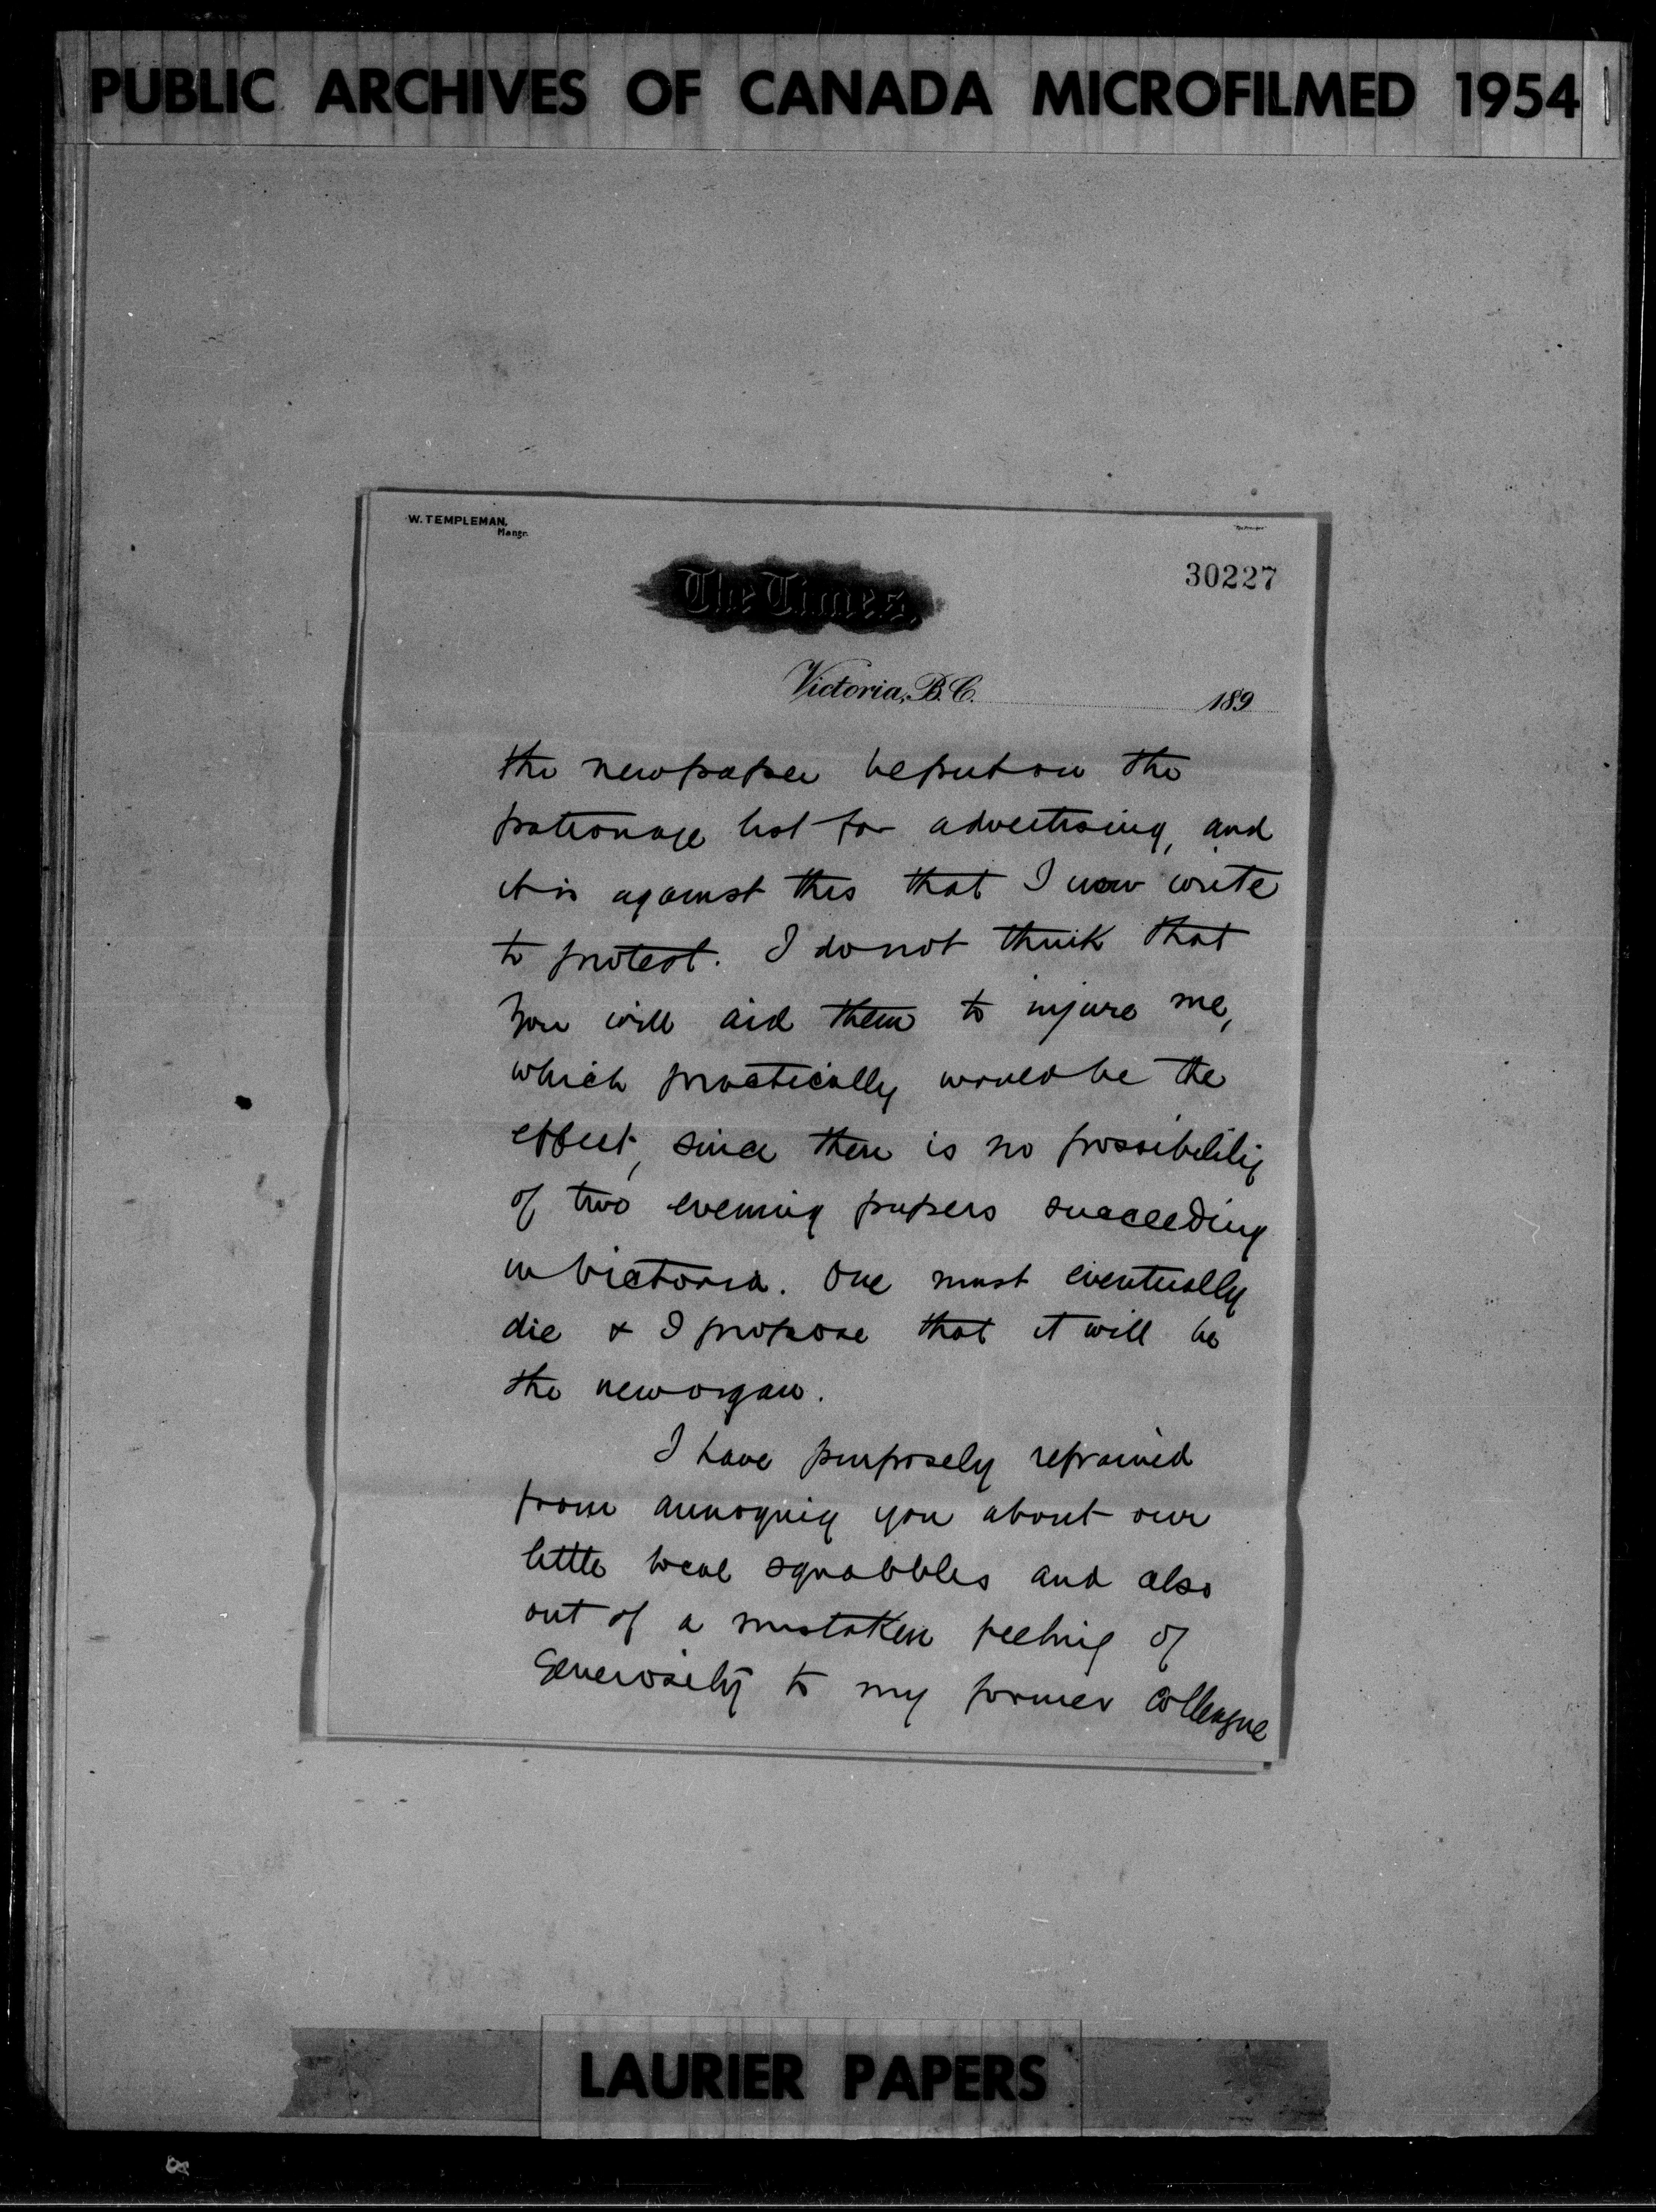 PUBLIC ARCHIVES OF CANADA MICROFILMED 1954
W. TEMPLEMAN,
Mangr.
30227
The Times,
Victoria, B.C. 189
the newpaper be put on the
patronage list for advertising, and
it is against this that I now write
to protest. I do not think that
you will aid them to injure me,
which practically would be the
effect, since there is no possibility
of two evening papers succeeding
in Victoria. One must eventually
die & I propose that it will be
the new organ.
I have purposely refrained
from annoying you about our
little local squabbles and also
out of a mistaken feeling of
generosity to my former colleague
LAURIER PAPERS